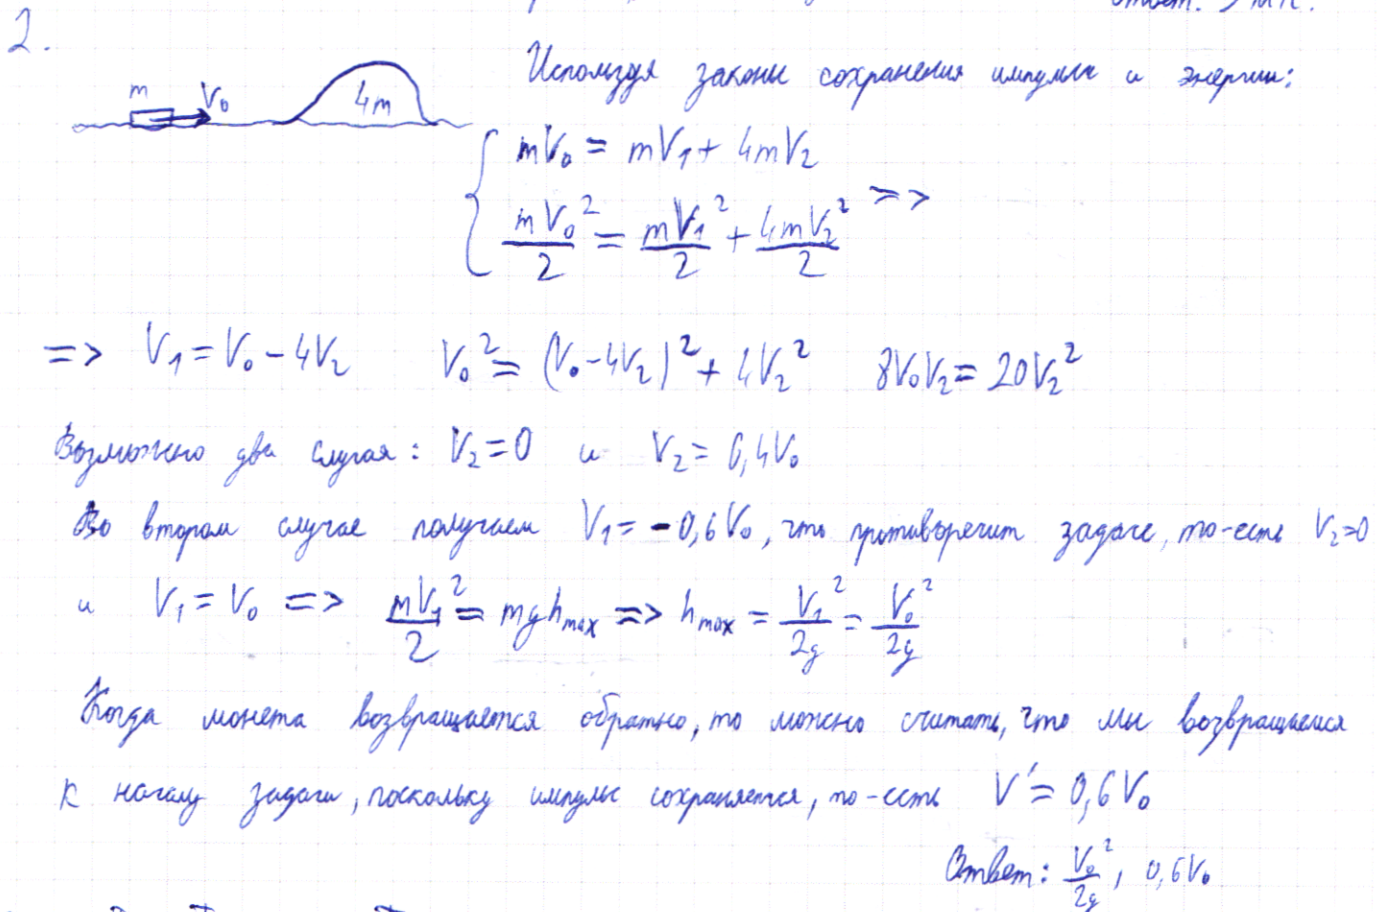 2.
Используя законы сохранения импульса и энергии:
m V₀ 4m
mV₀ = mV₁ + 4mV₂
mV₀²/2 = mV₁²/2 + 4mV₂²/2 =>
=> V₁ = V₀ - 4V₂ V₀² = (V₀ - 4V₂)² + 4V₂² 8V₀V₂ = 20V₂²
Возможно два случая: V₂ = 0 и V₂ = 0,4V₀
Во втором случае получаем V₁ = -0,6V₀, что противоречит задаче, то-есть V₂=0
и V₁ = V₀ => mV₁²/2 = mgh_max => h_max = V₁²/2g = V₀²/2g
Когда монета возвращается обратно, то можно считать, что мы возвращаемся
к началу задачи, поскольку импульс сохраняется, то-есть V' = 0,6V₀
Ответ: V₀²/2g, 0,6V₀